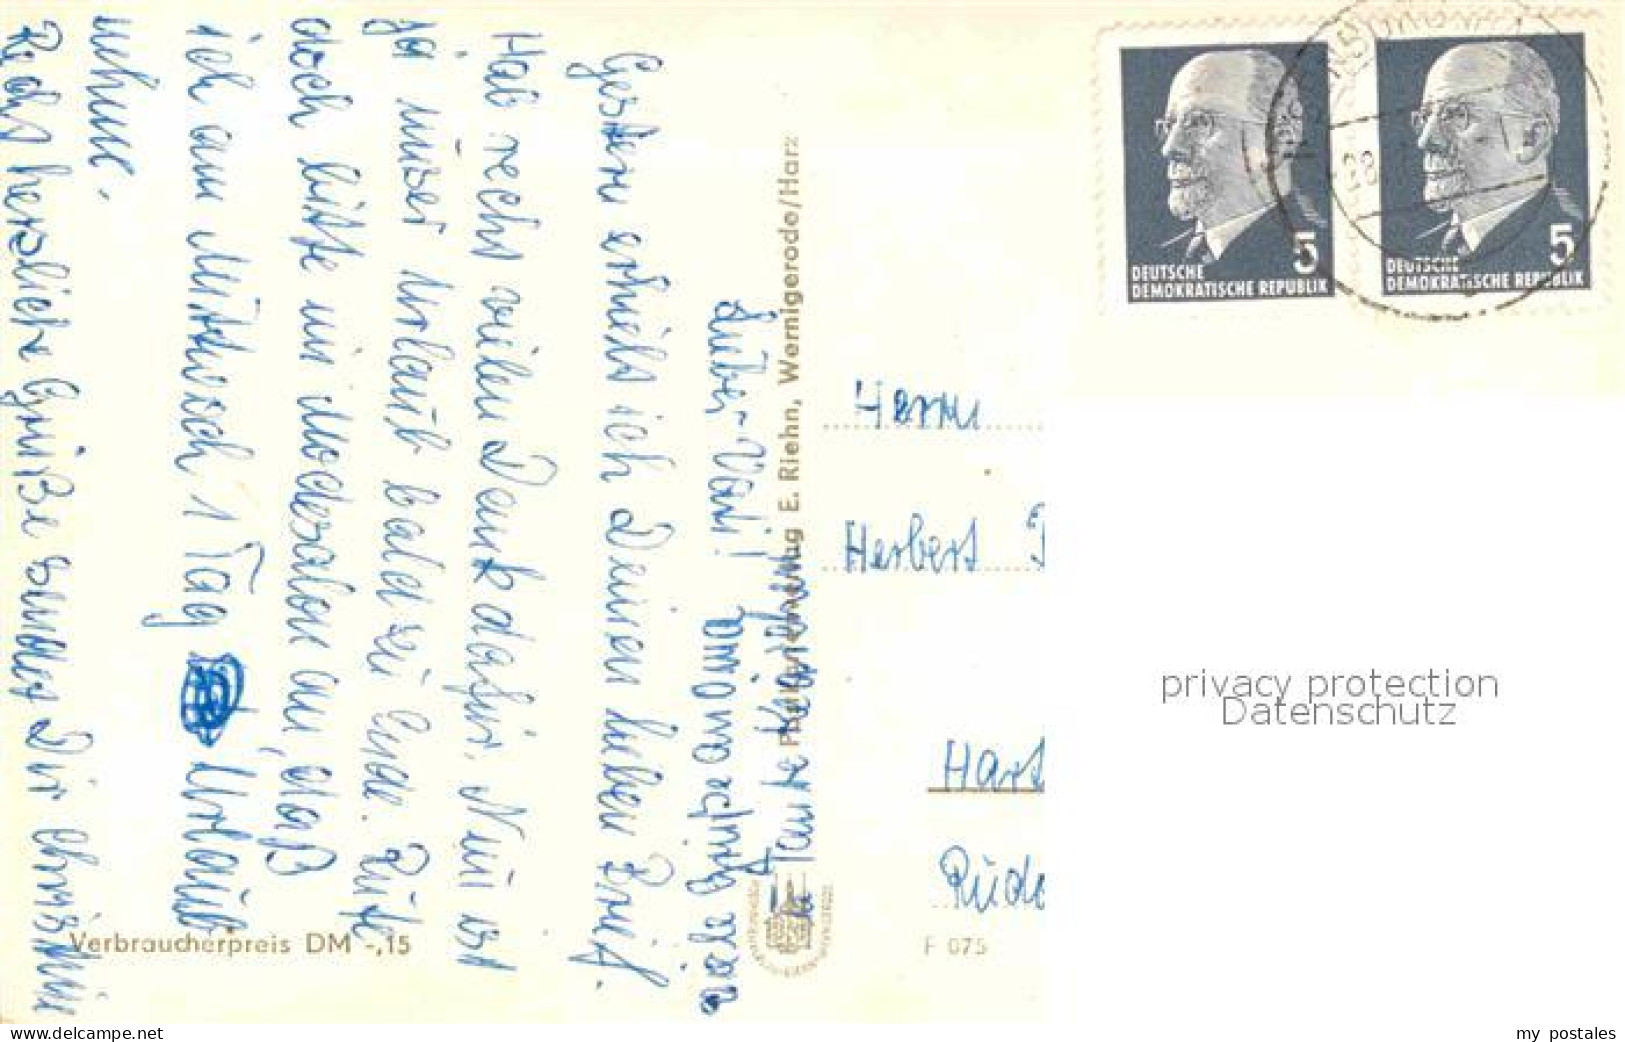 Lieber Vati!
Gestern erhielt ich Deinen lieben Brief.
Hab recht vielen Dank dafür. Nun ist
ja unser Urlaub bald zu Ende. Rufe
doch bitte in an, daß
ich am Mittwoch 1 Tag Urlaub
nehme.
Recht herzliche Grüße sendet Dir Christine
Tante Käthchen
E. Riehn, Wernigerode/Harz
Verbraucherpreis DM -,15
F 075
Herrn
Herbert
Hart
Rudo
5
DEUTSCHE
DEMOKRATISCHE REPUBLIK
5
DEUTSCHE
DEMOKRATISCHE REPUBLIK
28
privacy protection
Datenschutz
www.ansichtskartenversand.com
my postales